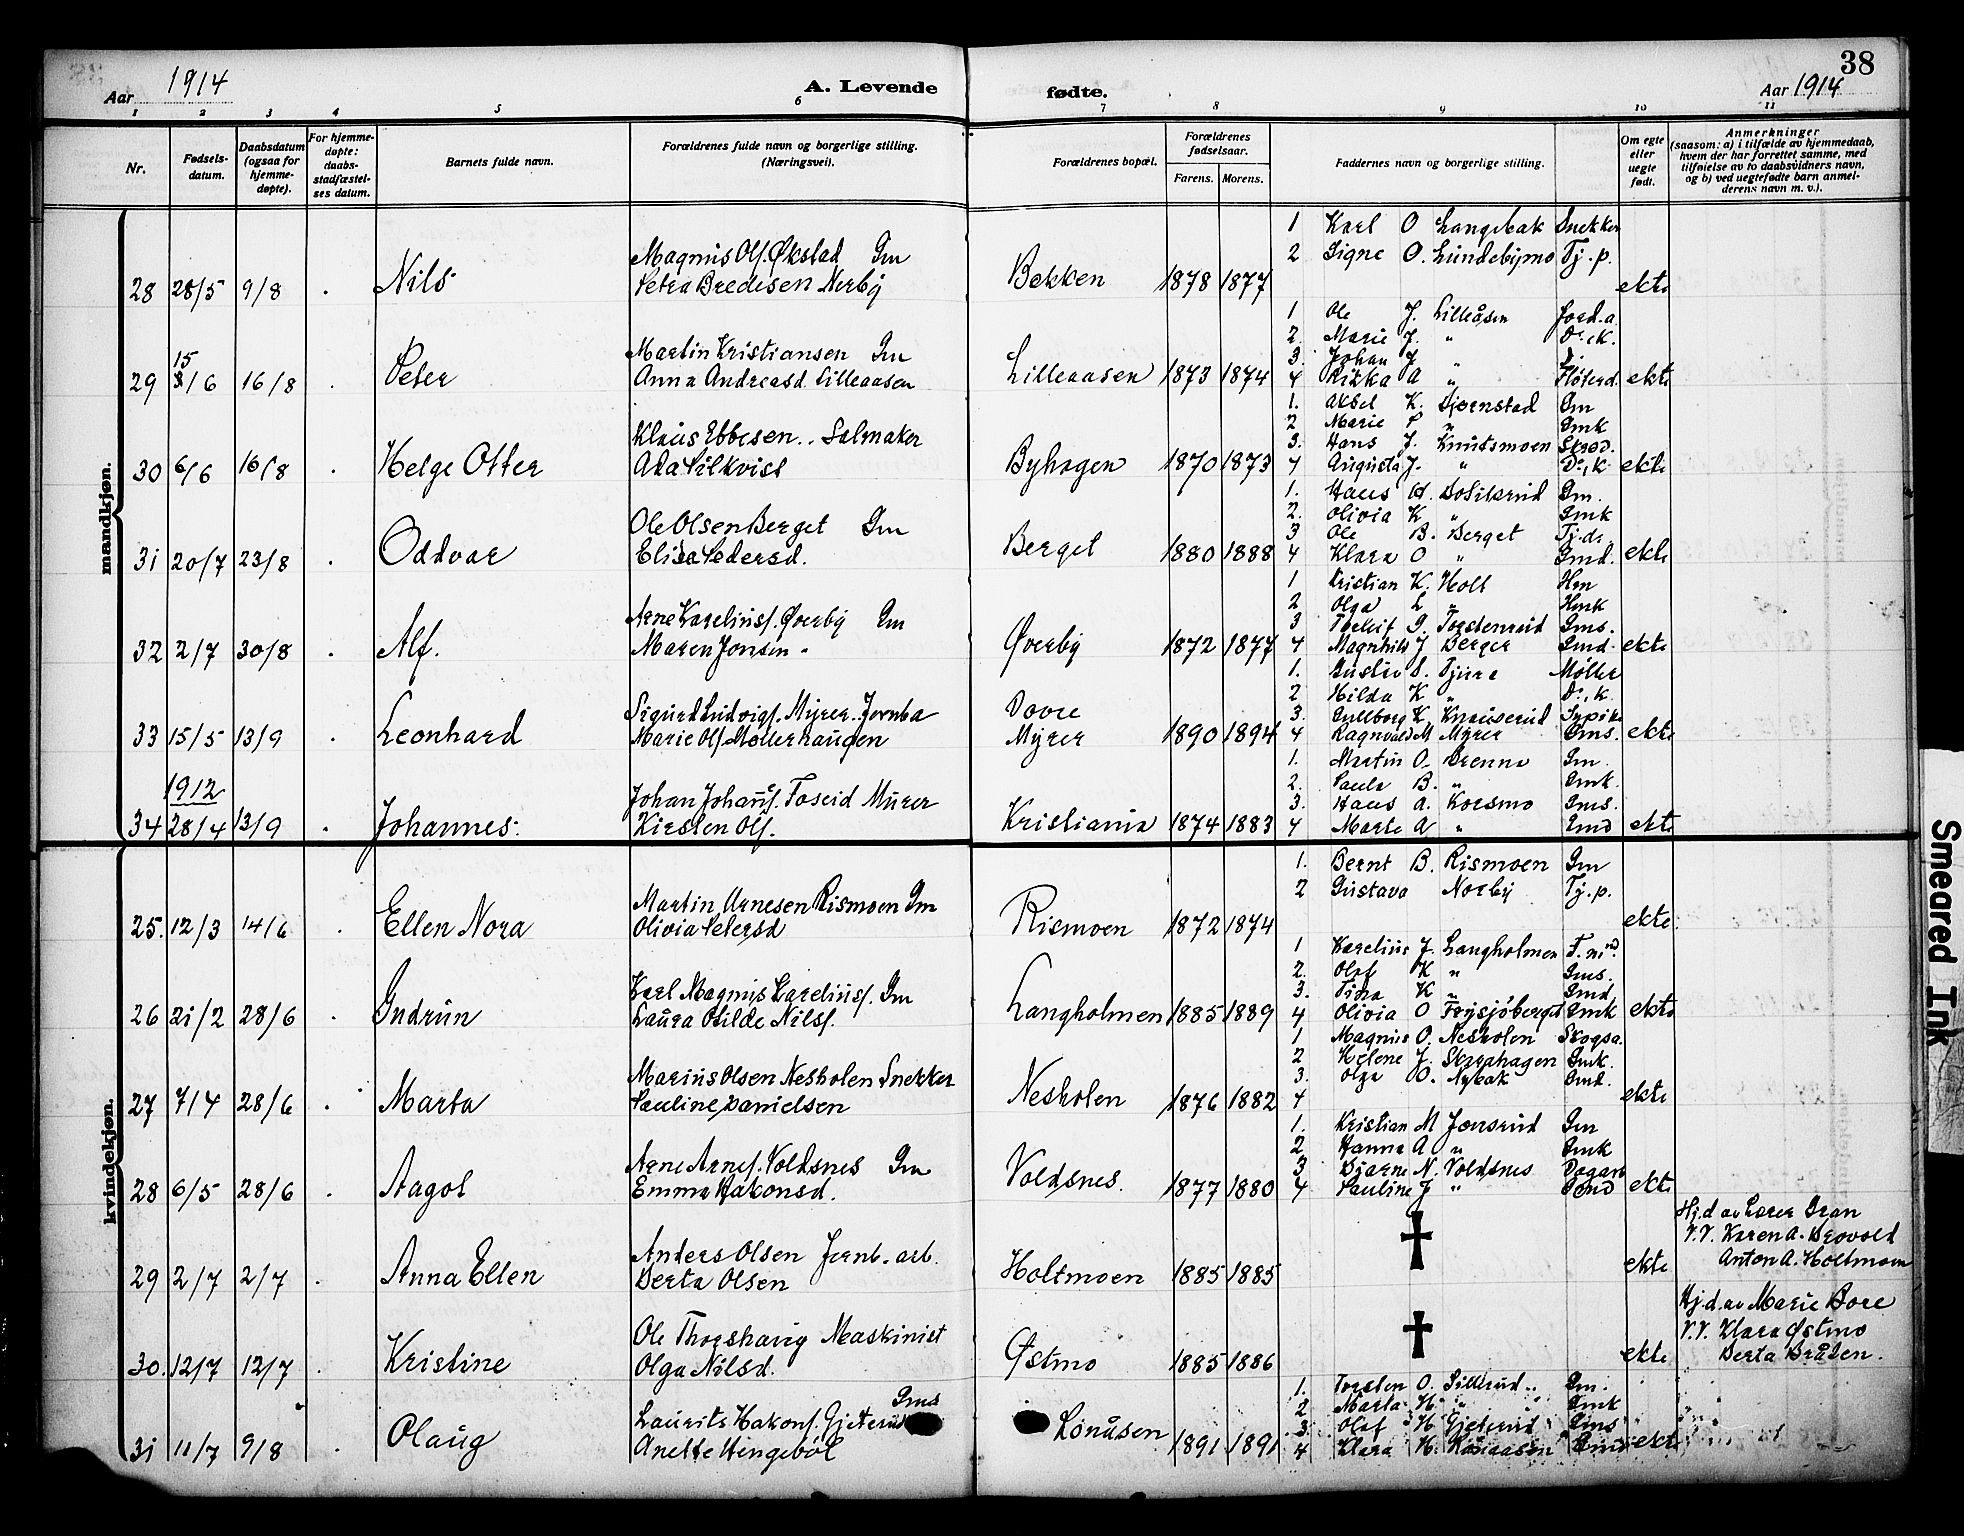 38
Aar 1914
A. Levende fødte.
Aar 1914
1 2 3 4 5 6 7 8 9 10 11
Nr.
Fødsels-datum.
Daabsdatum (ogsaa for hjemme-døpte).
For hjemme-døpte: daabs-stadfæstel-ses datum.
Barnets fulde navn.
Forældrenes fulde navn og borgerlige stilling. (Næringsvei).
Forældrenes bopæl.
Forældrenes fødselsaar.
Farens. Morens.
Faddernes navn og borgerlige stilling.
Om egte eller uegte født.
Anmerkninger
(saasom: a) i tilfælde av hjemmedaab,
hvem der har forrettet samme, med
tilføielse av to daabsvidners navn,
og b) ved uegtefødte barn anmel-
derens navn m. v.).
mandkjøn.
28 28/5 9/8 Nils
Magnus Ols. Økstad Gm
Petra Bredesen Nerby
Bekken 1878 1877
1 Karl O Langebak Snekker
2 Signe O. Lundebymo Tj.p.
ekte
29 15/6 16/8 Peter
Martin Kristiansen Gm
Anna Andreasd. Lilleaasen
Lilleaasen 1873 1874
1 Ole J. Lilleåsen Jord.a.
2. Marie J. " D.s.k.
3. Johan J "
4 Rikka A " Fløterd.
ekte
30 6/6 16/8 Helge Otter
Klaus Ebbesen.. Salmaker
Ada Silkvist
Byhagen 1870 1873
1. Aksel K. Stjernstad Gm
2 Marie S " Gmk
3. Hans J. Knutsmoen Skræd.
4 Augusta J. " D.s.k
ekte
31 20/7 23/8 Oddvar
Ole Olsen Berget Gm
Elisa Pedersd.
Berget 1880 1888
1. Hans H. Gm.
2. Olivia K " Gmk
3 Ole B. Berget Tj.dr.
4 Klara O " Gmd.
ekte
32 2/7 30/8 Alf.
Arne Kareliuss. Øverby Gm
Maren Jonsen "
Øverby 1872 1877
1 Kristian K. Holt Hm
2 Olga L " Hmk
3 G. Torstenrud Gms.
4 Magnhild J Berger Gmd.
ekte
33 15/5 13/9 Leonhard
Sigurd Ludvigs. Myrer. Jernba
Marie Ols Møllerhaugen
Dovre
Myrer 1890 1894
1. Gustav S. Tjura Møller
2 Hilda K " D.s.k.
3. Gullborg K. Knauserud Sypike
4 Ragnvald M Myrer Gms.
ekte
1912
34 28/4 13/9 Johannes.
Johan Johans. Foseid Murer
Kirsten Ols.
Kristiania 1874 1883
1. Martin O. Brenna Gm
2. Paula B. " Gmk
3. Hans A. Korsmo Gms.
4 Marte A " Gmd
ekte
kvindekjøn.
25. 12/3 14/6 Ellen Nora
Martin Arnesen Rismoen Gm
Olivia Petersd
Rismoen 1872 1874
1. Bernt B. Rismoen Gm
2 Gustava Norby Tj.p.
ekte
26 21/2 28/6 Gudrun
Karl Magnus Kareliuss. Gm
Laura Otilde Nilss.
Langholmen 1885 1889
1 Karelius J. Langholmen F.m.
2. Olof K " Gms.
3. Tina K " Gmd
4 Olivia O Frysjöberget Gmk
ekte
27 7/4 28/6 Marta
Marius Olsen Nesholen Snekker
Pauline Danielsen
Nesholen 1876 1882
1 Magnus O. Nesholen Skogsa.
2 Helene J. Skrephagen Gmk.
3. Olga O. Nybak Gmd.
4
ekte
28 6/5 28/6 Aagot
Arne Arnes. Voldsnes Gm
Emma Hakonsd.
Voldsnes. 1877 1880
1. Kristian M Jonsrud Gm
2 Hanna A " Gmk
3 Bjarne N. Voldsnes Dagarb
4 Pauline J "
ekte
29 2/7 2/7 Anna Ellen
Anders Olsen Jernb. arb.
Berta Olsen
Holtmoen 1885 1885
ekte
Hj.d av Lærer Gran
V.V. Karen A. Brovold
Anton A. Holtmoen
30. 12/7 12/7 Kristine
Ole Thorshaug Maskinist
Olga Nilsd.
Østmo 1885 1886
ekte
Hj.d. av Marie Bore
V.V. Klara Østmo
Berta Bråten.
31 11/7 9/8 Olaug
Laurits Hakons. Gjeterud Gms
Anette Hengebøl
Lønåsen 1891 1891
1. Torsten O. Sillerud Gm.
2 Marta H. " Gmk
3. Olof H Gjeterud Gms
4 Klara H. Gmd
ekte
Smeared Ink